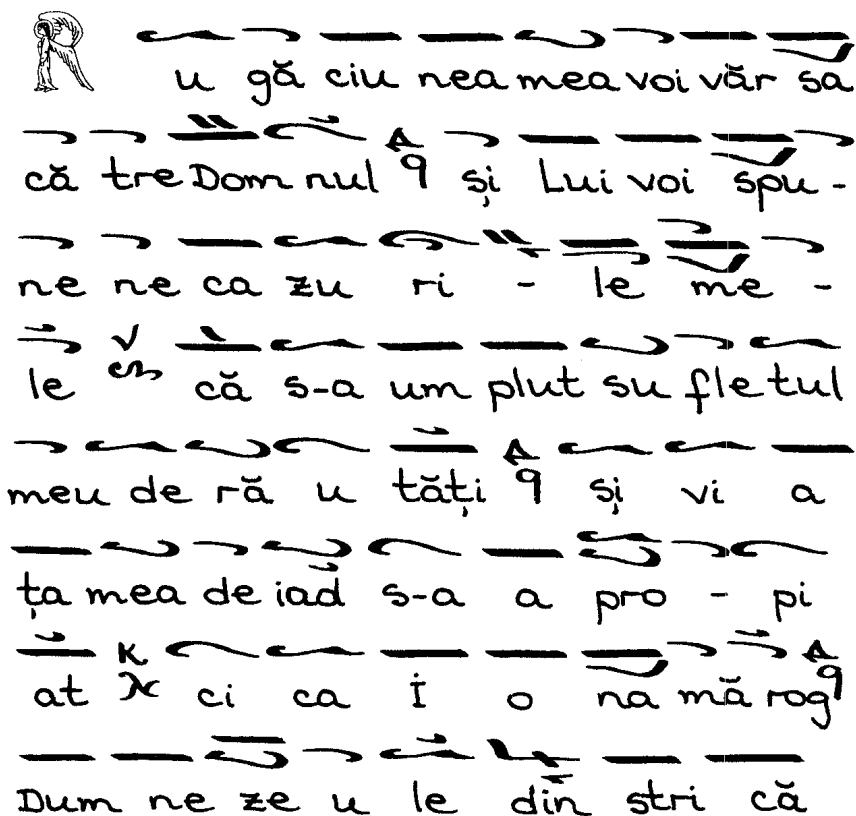 R u gă ciu nea mea voi văr sa
că tre Dom nul și Lui voi spu -
ne ne ca zu ri - le me -
le că s-a um plut su fle tul
meu de ră u tăți și vi a
ța mea de iad s-a a pro - pi
at ci ca I o na mă rog
Dum ne ze u le din stri că